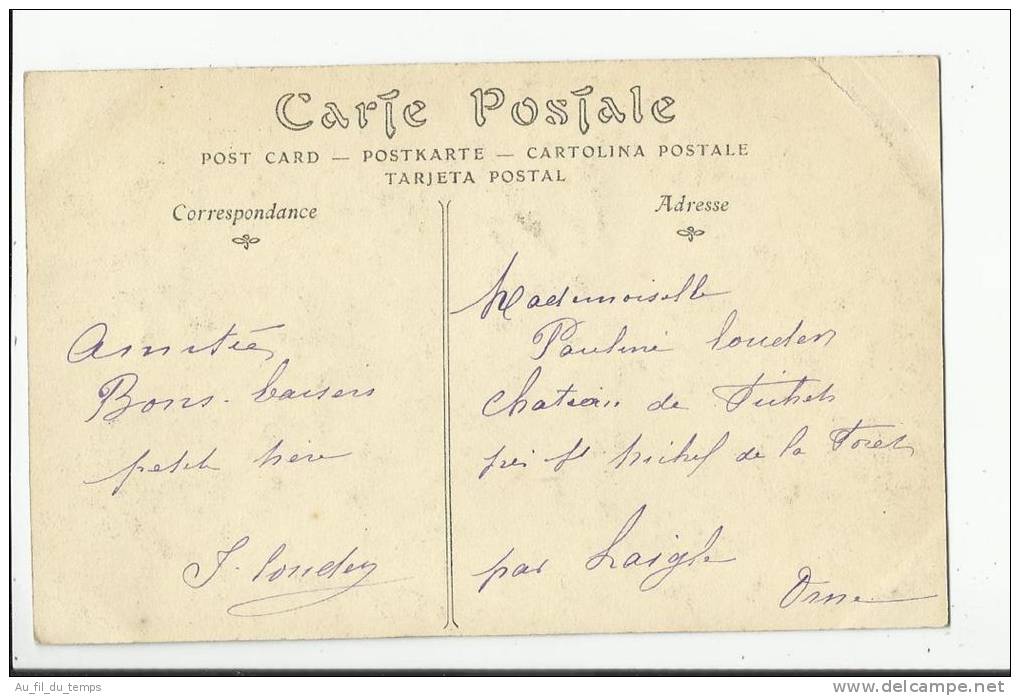 Carte Postale
POST CARD — POSTKARTE — CARTOLINA POSTALE
TARJETA POSTAL
Correspondance
Amitiés
Bons baisers
petite
J. Louden
Adresse
Mademoiselle
Pauline Louden
Chateau de
près St Michel de la Foret
par Laigle
Orne
Au_fil_du_temps
www.delcampe.net